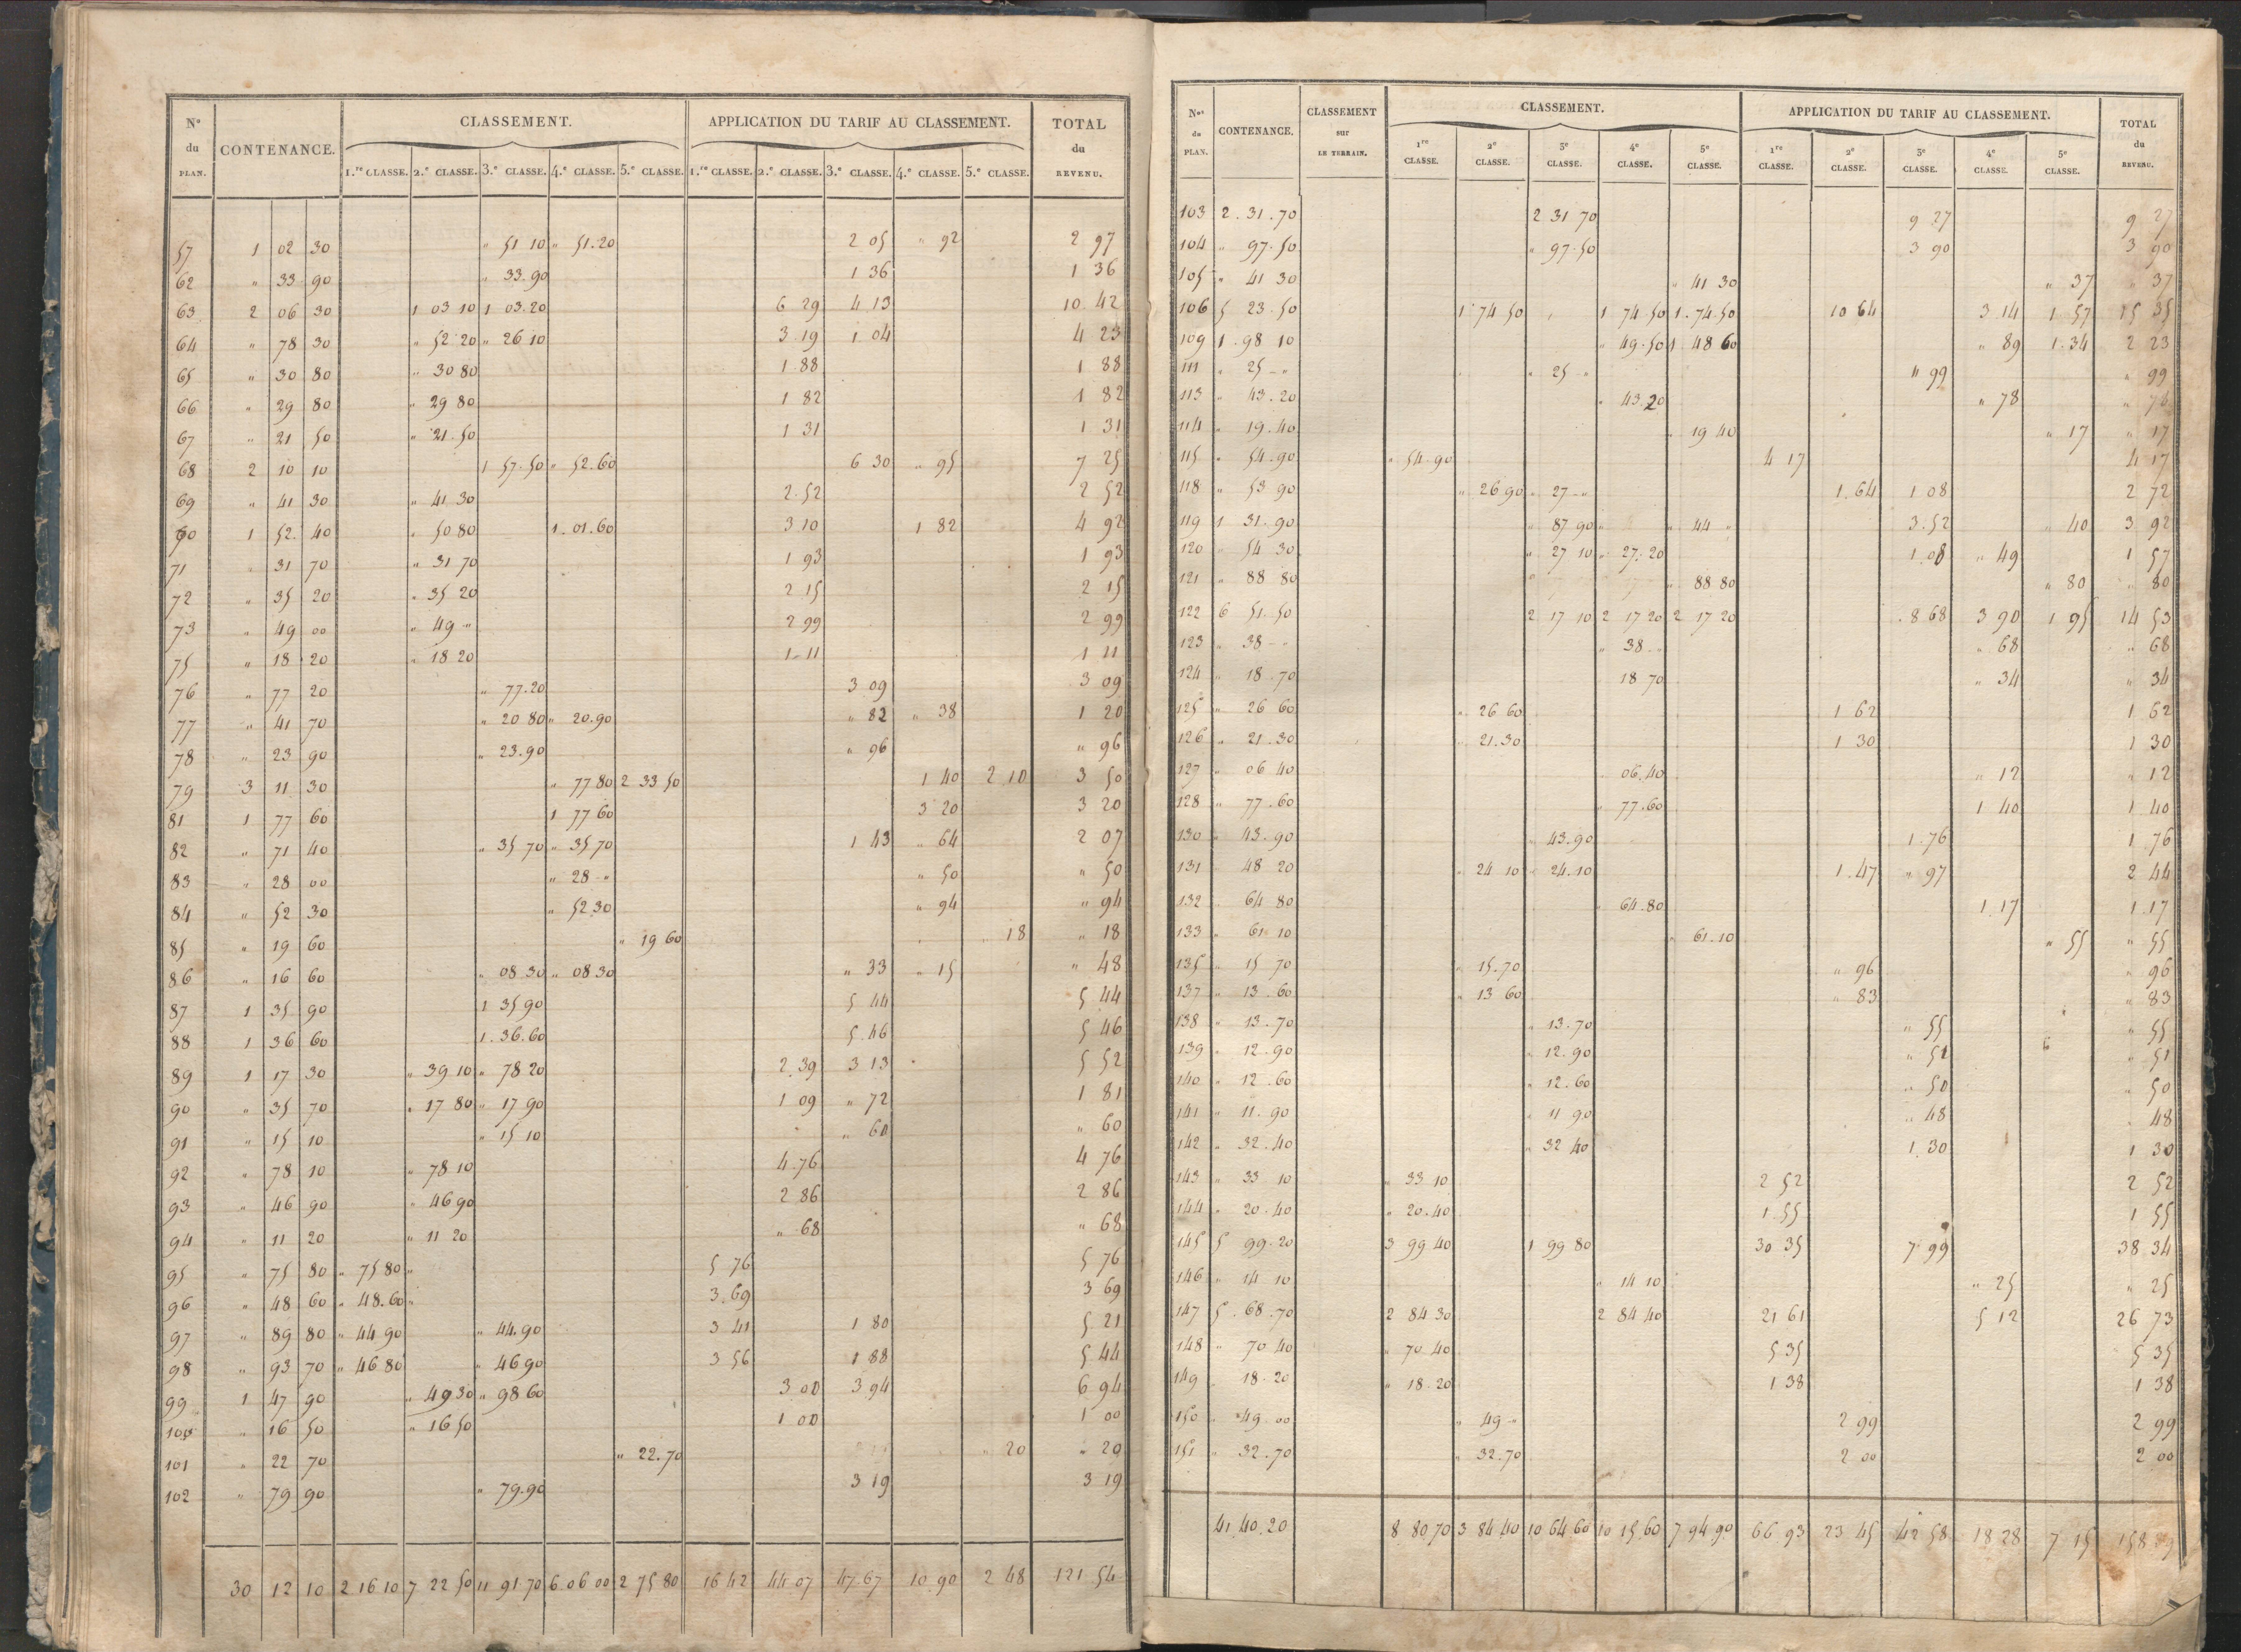 N° du PLAN. CONTENANCE. CLASSEMENT. APPLICATION DU TARIF AU CLASSEMENT. TOTAL du REVENU.
1.re CLASSE. 2.e CLASSE. 3.e CLASSE. 4.e CLASSE. 5.e CLASSE. 1.re CLASSE. 2.e CLASSE. 3.e CLASSE. 4.e CLASSE. 5.e CLASSE.
57 1 02 30 " 51 10 " 51.20 2 05 " 92 2 97
62 " 33 90 " 33.90 1 36 1 36
63 2 06 30 1 03 10 1 03.20 6 29 4 13 10 42
64 " 78 30 " 52 20 " 26 10 3 19 1 04 4 23
65 " 30 80 " 30 80 1 88 1 88
66 " 29 80 " 29 80 1 82 1 82
67 " 21 50 " 21.50 1 31 1 31
68 2 10 10 1 57.50 " 52.60 6 30 " 95 7 25
69 " 41 30 " 41 30 2.52 2 52
70 1 52 40 " 50 80 1.01.60 3 10 1 82 4 92
71 " 31 70 " 31 70 1 93 1 93
72 " 35 20 " 35 20 2 15 2 15
73 " 49 00 " 49 " 2 99 2 99
75 " 18 20 " 18 20 1 11 1 11
76 " 77 20 " 77.20 3 09 3 09
77 " 41 70 " 20 80 " 20.90 " 82 " 38 1 20
78 " 23 90 " 23.90 " 96 " 96
79 3 11 30 " 77 80 2 33 50 1 40 2 10 3 50
81 1 77 60 1 77 60 3 20 3 20
82 " 71 40 " 35 70 " 35 70 1 43 " 64 2 07
83 " 28 00 " 28 " " 50 " 50
84 " 52 30 " 52 30 " 94 " 94
85 " 19 60 " 19 60 " 18 " 18
86 " 16 60 " 08.30 " 08 30 " 33 " 15 " 48
87 1 35 90 1 35 90 5 44 5 44
88 1 36 60 1.36.60 5.46 5 46
89 1 17 30 " 39 10 " 78 20 2.39 3 13 5 52
90 " 35 70 " 17 80 " 17 90 1 09 " 72 1 81
91 " 15 10 " 15 10 " 60 " 60
92 " 78 10 " 78 10 4.76 4 76
93 " 46 90 " 46 90 2 86 2 86
94 " 11 20 " 11 20 " 68 " 68
95 " 75 80 " 75 80 " 5 76 5 76
96 " 48 60 " 48.60 " 3.69 3 69
97 " 89 80 " 44 90 " 44.90 3 41 1 80 5 21
98 " 93 70 " 46 80 " 46 90 3 56 1 88 5 44
99 1 47 90 " 49 30 " 98 60 3 00 3 94 6 94
100 " 16 50 " 16 50 1 00 1 00
101 " 22 70 " 22.70 " 20 " 20
102 " 79 90 " 79.90 3 19 3 19
30 12 10 2 16 10 7 22 50 11 91.70 6.06 00 2 75 80 16 42 44.07 47.67 10.90 2 48 121 54
Nos du PLAN. CONTENANCE. CLASSEMENT sur LE TERRAIN. CLASSEMENT. APPLICATION DU TARIF AU CLASSEMENT. TOTAL du REVENU.
1re CLASSE. 2e CLASSE. 3e CLASSE. 4e CLASSE. 5e CLASSE. 1re CLASSE. 2e CLASSE. 3e CLASSE. 4e CLASSE. 5e CLASSE.
103 2.31.70 2 31 70 9 27 9 27
104 " 97.50 " 97.50 3 90 3 90
105 " 41 30 " 41 30 " 37 " 37
106 5 23.50 1 74 50 1 74.50 1.74.50 10 64 3 14 1 57 15 35
109 1.98 10 " 49.50 1 48 60 " 89 1.34 2 23
111 " 25 - " " 25 - " " 99 " 99
113 " 43.20 " 43.20 " 78 " 78
114 " 19.40 " 19 40 " 17 " 17
115 " 54.90 " 54.90 4 17 4 17
118 " 53 90 " 26 90 " 27 - " 1.64 1 08 2 72
119 1 31.90 " 87 90 " " 44 " 3.52 " 40 3 92
120 " 54 30 " 27 10 " 27.20 1.08 " 49 1 57
121 " 88 80 " 88 80 " 80 " 80
122 6 51.50 2 17 10 2 17 20 2 17 20 8 68 3 90 1 95 14 53
123 " 38 - " " 38 - " " 68 " 68
124 " 18.70 18 70 " 34 " 34
125 " 26 60 " 26 60 1 62 1 62
126 " 21.30 " 21.30 1 30 1 30
127 " 06 40 06.40 " 12 " 12
128 " 77.60 " 77.60 1 40 1 40
130 " 43.90 " 43.90 1.76 1 76
131 " 48 20 " 24 10 " 24.10 1.47 " 97 2 44
132 " 64 80 " 64.80 1.17 1.17
133 " 61 10 " 61.10 " 55 " 55
135 " 15 70 " 15.70 " 96 " 96
137 " 13.60 " 13 60 " 83 " 83
138 " 13.70 " 13.70 " 55 " 55
139 " 12.90 " 12.90 " 51 " 51
140 " 12.60 " 12.60 " 50 " 50
141 " 11.90 " 11 90 " 48 " 48
142 " 32.40 " 32 40 1.30 1 30
143 " 33 10 " 33 10 2 52 2 52
144 " 20.40 " 20.40 1.55 1 55
145 5 99.20 3 99 40 1 99 80 30 35 7 99 38 34
146 " 14 10 " 14 10 " 25 " 25
147 5.68.70 2 84 30 2 84 40 21 61 5 12 26 73
148 " 70 40 " 70 40 5 35 5 35
149 " 18.20 " 18.20 1 38 1 38
150 " 49.00 " 49 " 2 99 2 99
151 " 32.70 " 32.70 2 00 2 00
41.40.20 8 80.70 3 84 40 10 64 60 10 15.60 7 94 90 66 93 23 45 42 58 18 28 7 15 158